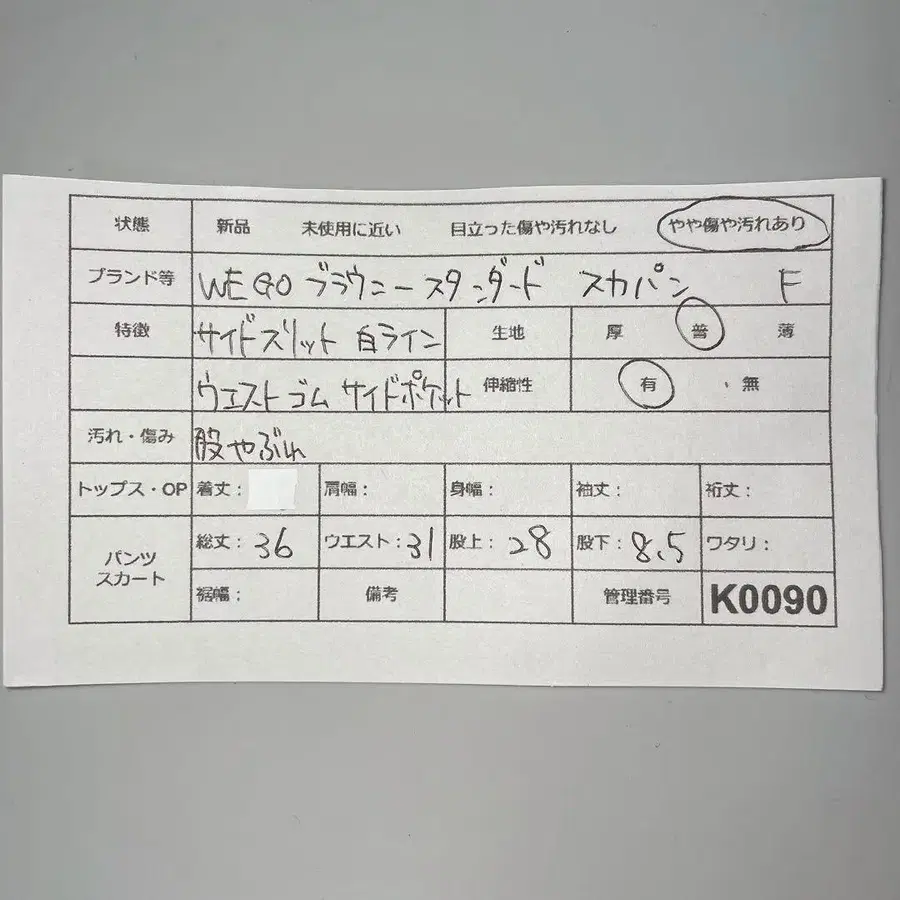 状態 新品 未使用に近い 目立った傷や汚れなし やや傷や汚れあり
ブランド等 WEGO ブラウニースタンダード スカパン F
特徴 サイドスリット 白ライン 生地 厚 普 薄
ウエストゴム サイドポケット 伸縮性 有 ・ 無
汚れ・傷み 股やぶれ
トップス・OP 着丈: 肩幅: 身幅: 袖丈: 裄丈:
パンツ スカート 総丈: 36 ウエスト: 31 股上: 28 股下: 8.5 ワタリ:
裾幅: 備考 管理番号 K0090